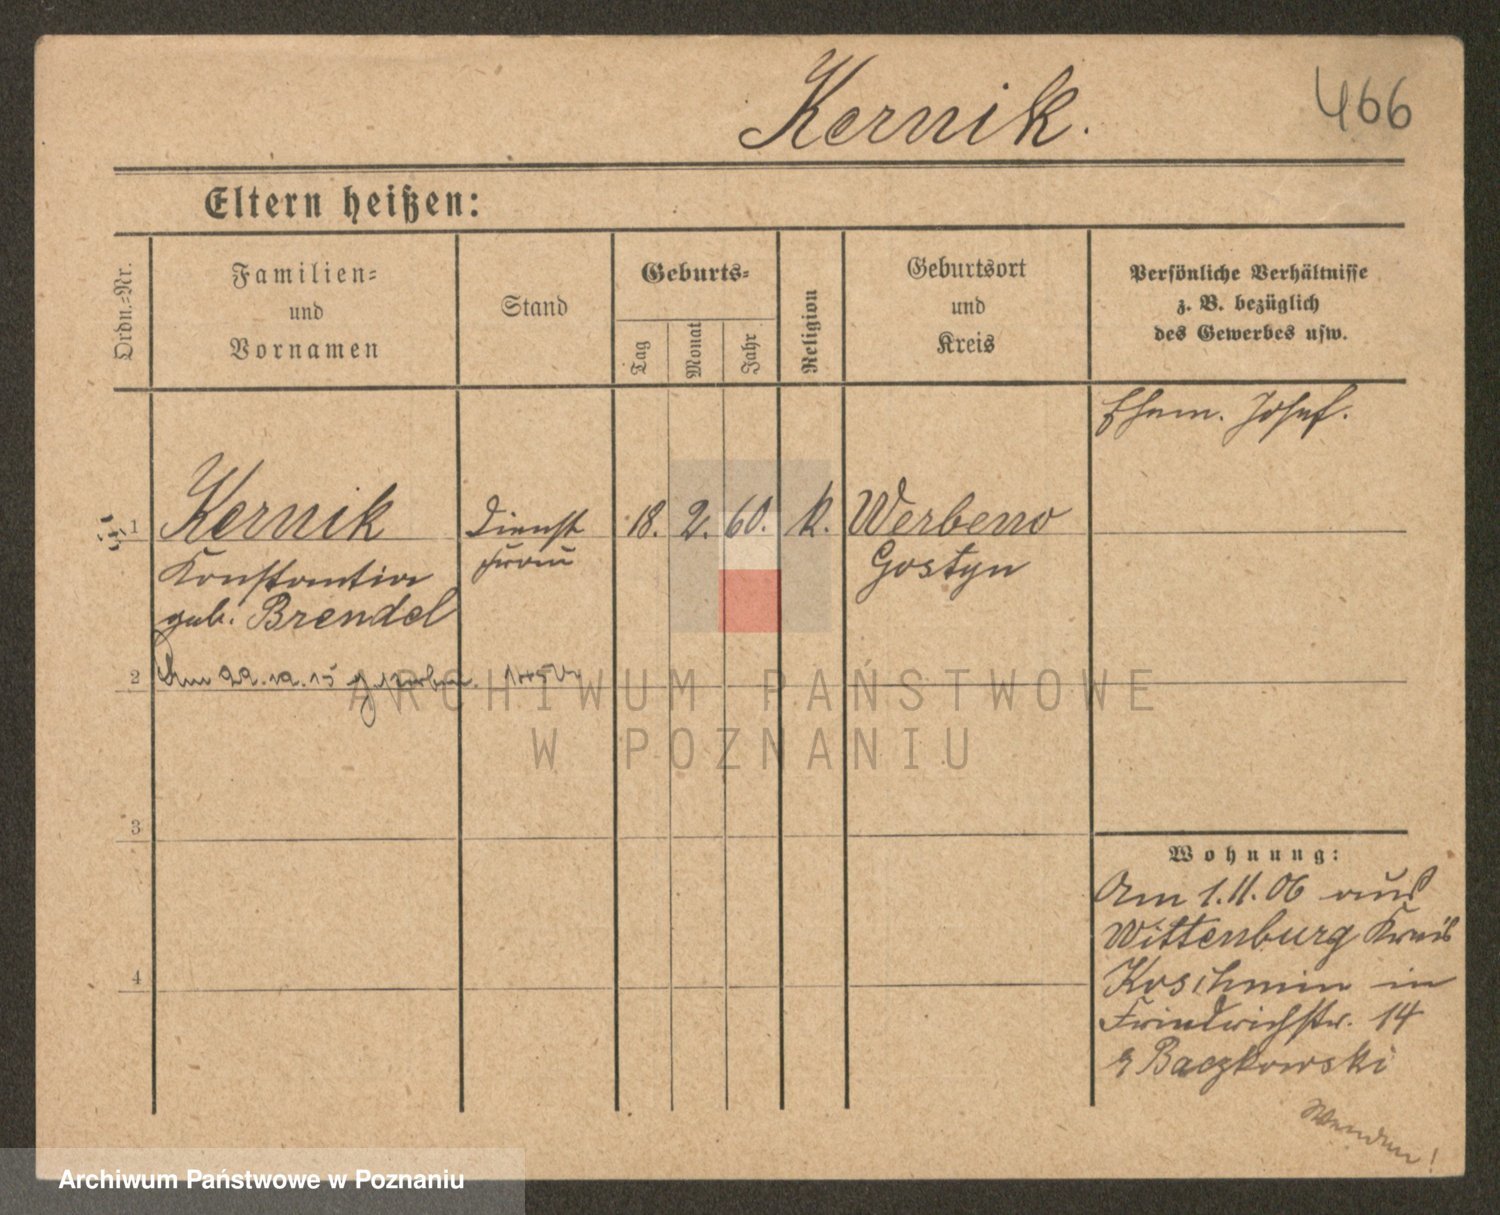 Kernik.
466
Eltern heißen:
Ordn.-Nr.
Familien-
und
Vornamen
Stand
Geburts-
Tag
Monat
Jahr
Religion
Geburtsort
und
Kreis
Persönliche Verhältnisse
z. B. bezüglich
des Gewerbes usw.
Ehem. Josef.
1 Kernik Dienst 18. 2. 60. k. Werbeno
Konstantia frau Gostyn
geb. Brendel
2 Am 22.12.15 gestorben.
ARCHIWUM PAŃSTWOWE
W POZNANIU
3
4
Wohnung:
Am 1.11.06 aus
Wittenburg Kreis
Koschmin in
Friedrichstr. 14
b Baczkowski
Wenden!
Archiwum Państwowe w Poznaniu